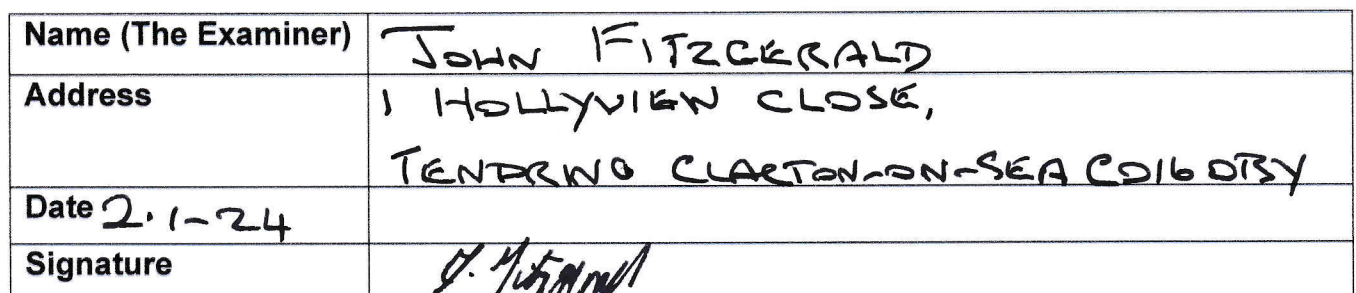 Name (The Examiner) JOHN FITZGERALD
Address 1 HOLLYVIEW CLOSE,
TENDRING CLACTON-ON-SEA CO16 0BY
Date 2.1-24
Signature J. Fitzgerald